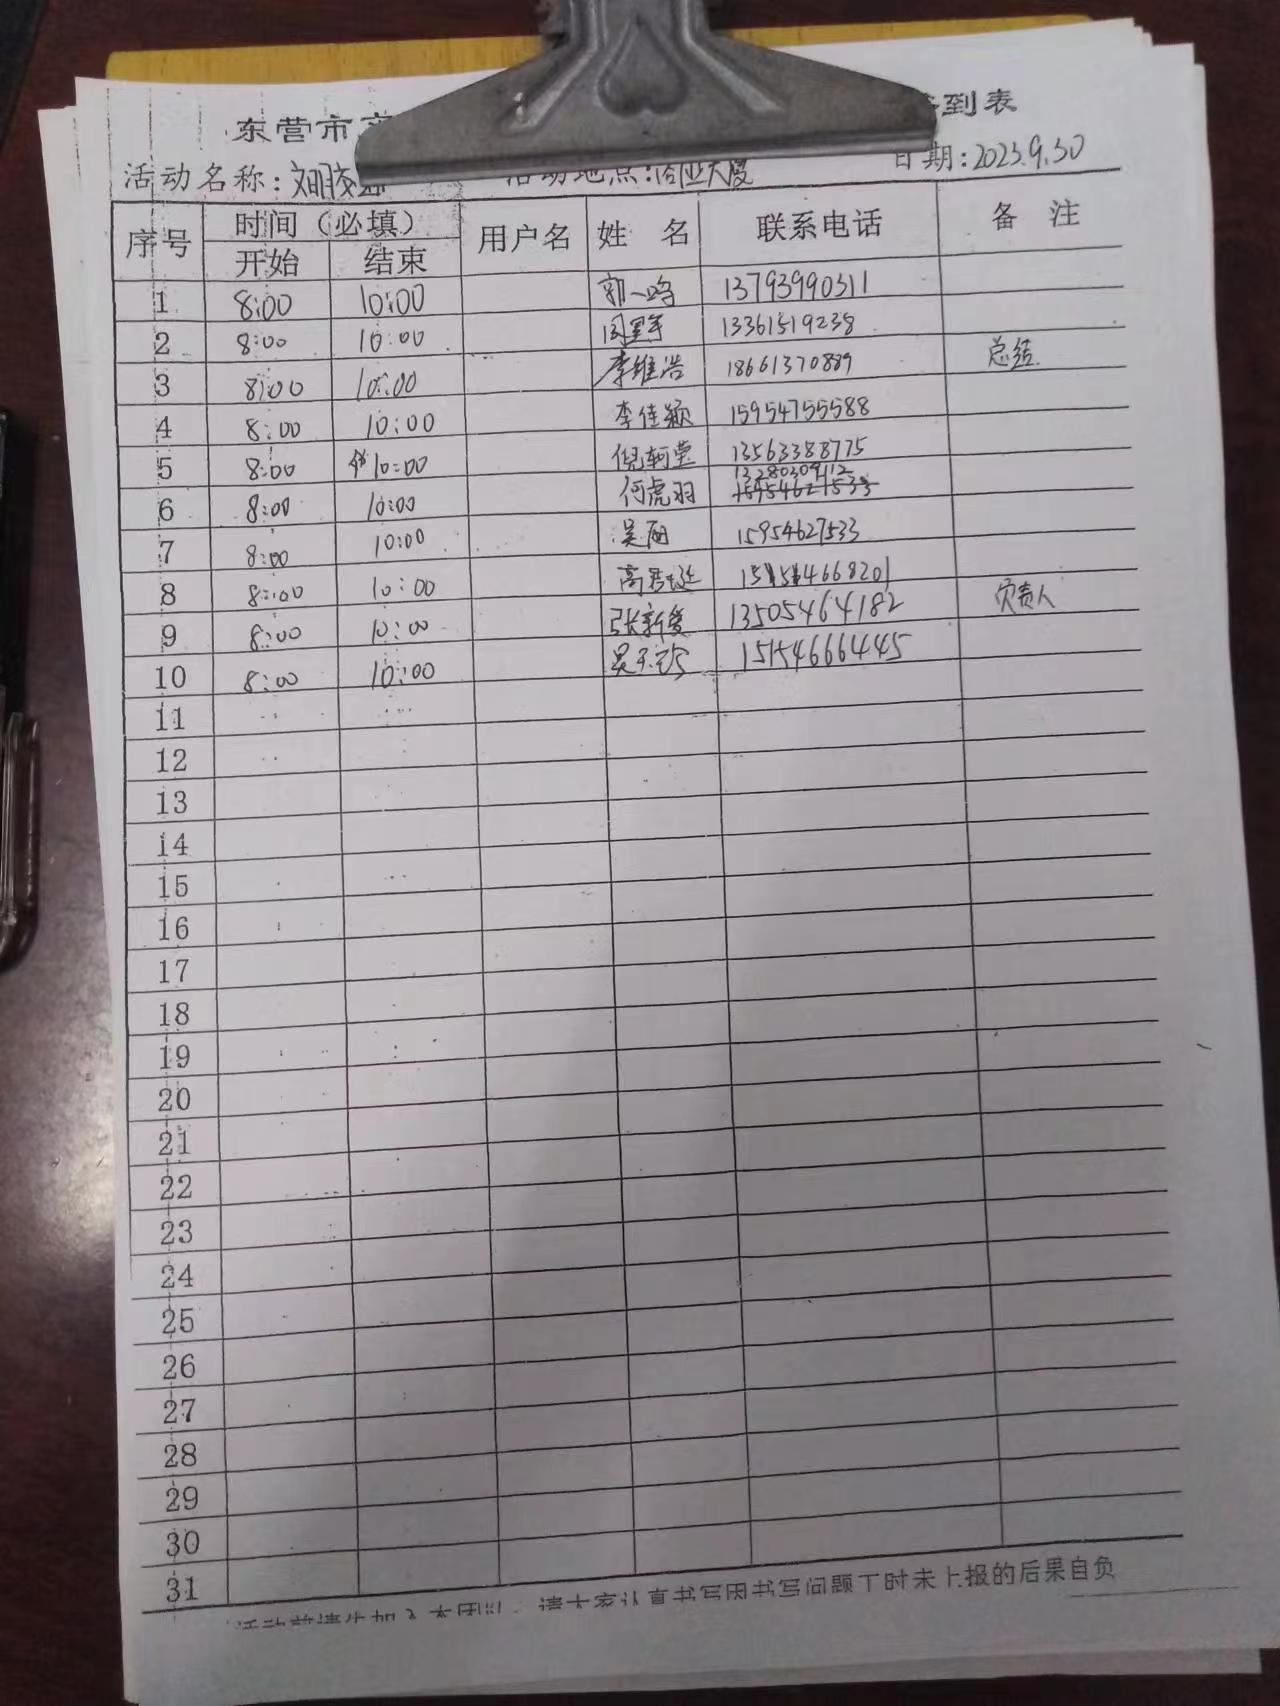 东营市 到表
活动名称:文明交 活动地点:商业大厦 日期:2023.9.30
序号 时间（必填） 用户名 姓 名 联系电话 备 注
开始 结束
1 8:00 10:00 郭一鸣 13793990311
2 8:00 10:00 13361519238
3 8:00 10:00 李维浩 18661370889 总结
4 8:00 10:00 李佳颖 15954755588
5 8:00 10:00 倪轲莹 13563388775
6 8:00 10:00 何虎羽 13280309112 15954627533
7 8:00 10:00 吴丽 15954627533
8 8:00 10:00 高君 8201
9 8:00 10:00 张新爱 13505464182 负责人
10 8:00 10:00 15154666445
11
12
13
14
15
16
17
18
19
20
21
22
23
24
25
26
27
28
29
30
31
请大家认真书写因书写问题工时未上报的后果自负